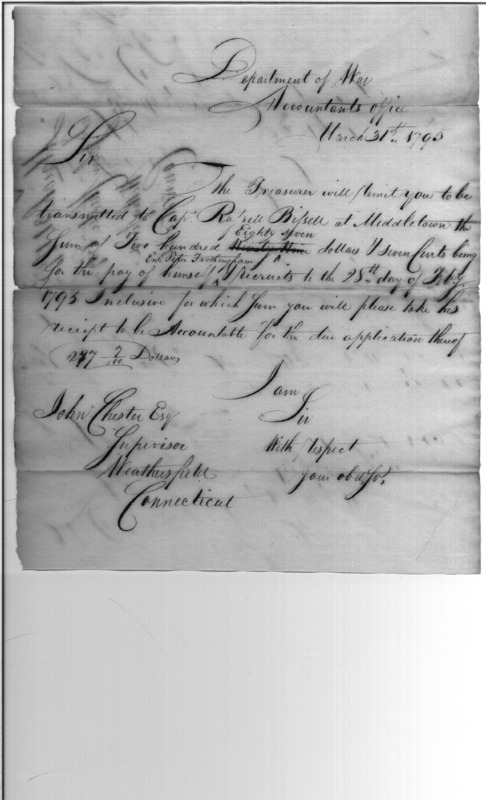 Department of War
Accountants office
March 31st. 1795
Sir
The Treasurer will remit you to be
transmitted to Capt. Russell Bissell at Middletown the
Eighty seven
Sum of Two hundred dollars & seven Cents being
Ens. Peter Frothingham
for the pay of himself & recruits to the 28th day of Feby
1795 Inclusive for which sum you will please take his
receipt to be Accountable for the due application thereof
287 7/100 Dollars
I am
Sir
With respect
your obd. Sv.
John Chester Esq
Supervisor
Weathersfield
Connecticut